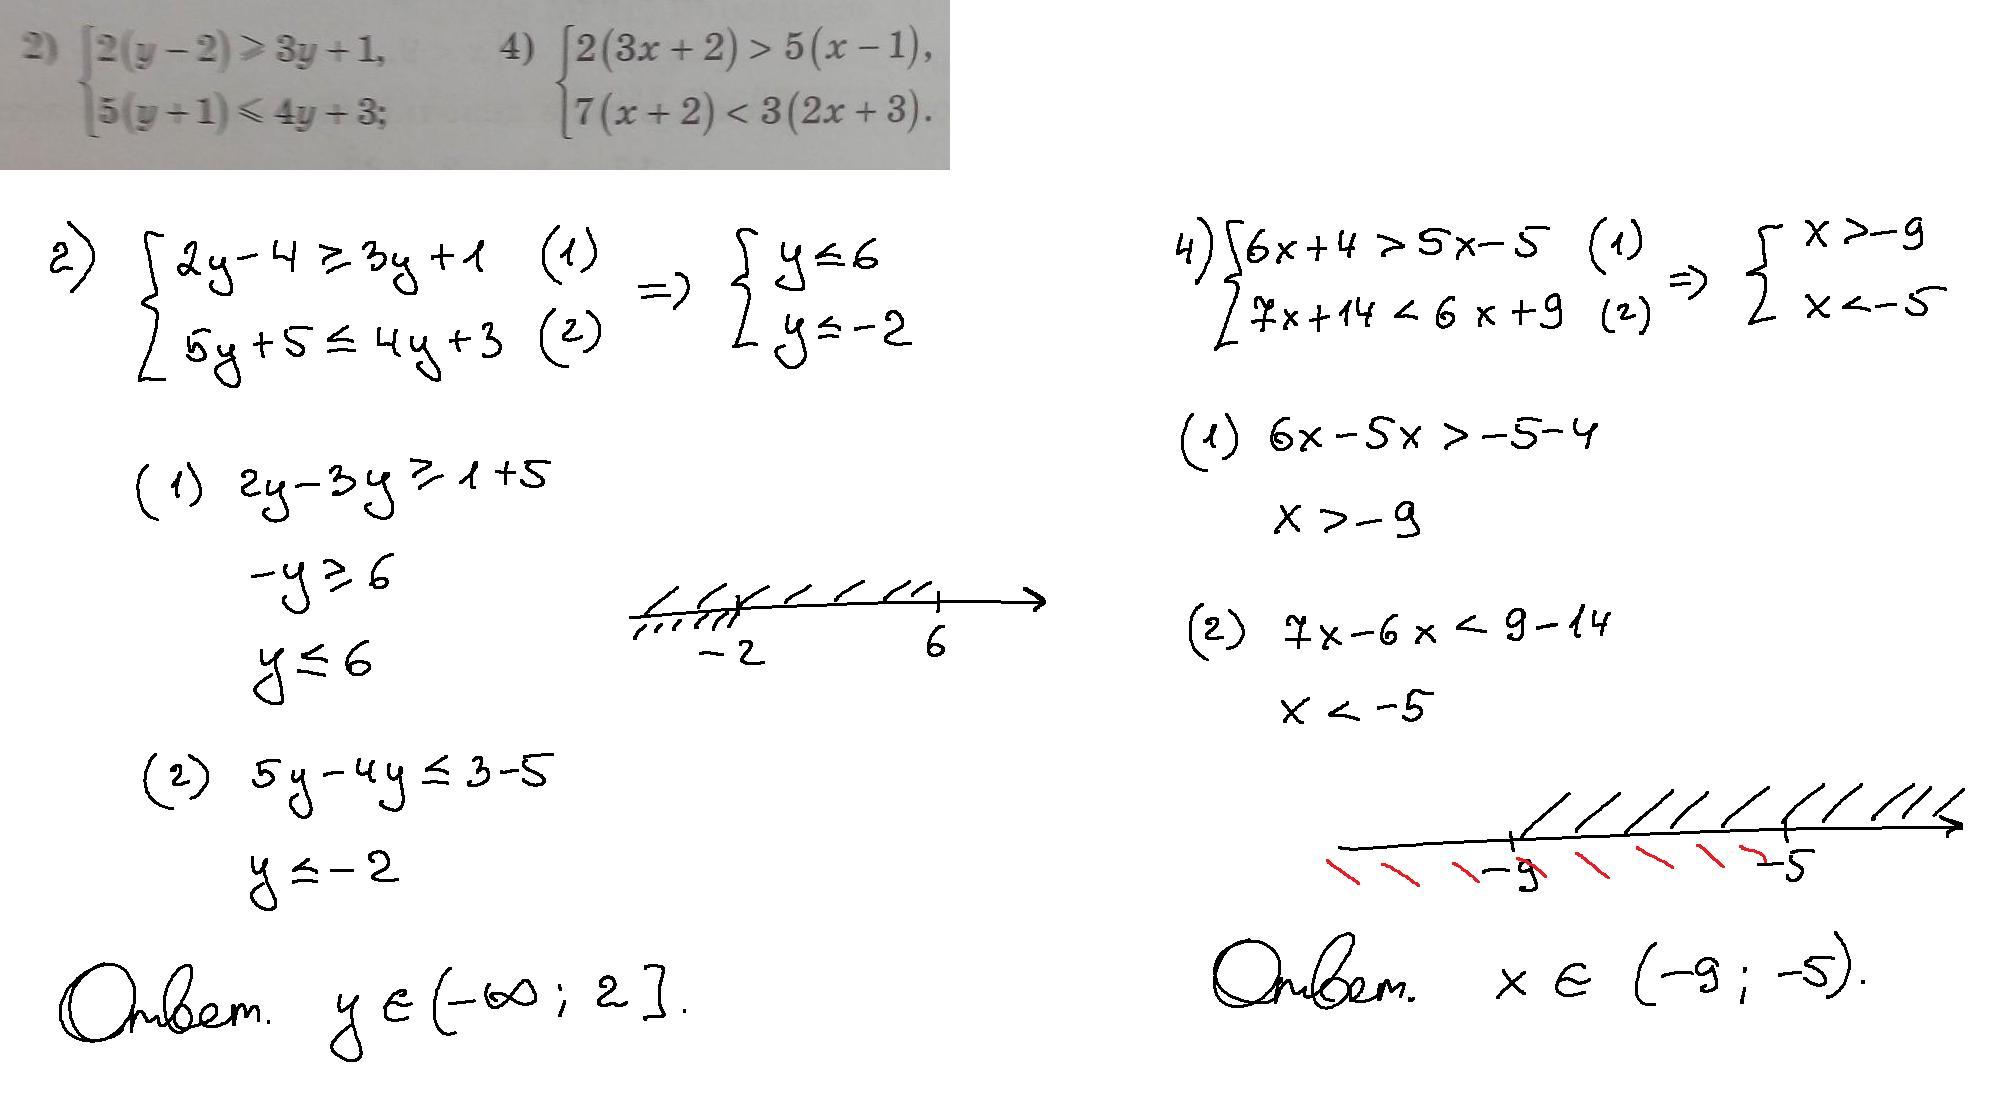 2) {2(y − 2) ⩾ 3y + 1,
5(y + 1) ⩽ 4y + 3;
4) {2(3x + 2) > 5(x − 1),
7(x + 2) < 3(2x + 3).
2) {2y − 4 ⩾ 3y + 1 (1)
5y + 5 ≤ 4y + 3 (2)
=> {y ≤ 6
y ≤ −2
(1) 2y − 3y ⩾ 1 + 5
−y ⩾ 6
y ≤ 6
(2) 5y − 4y ≤ 3 − 5
y ≤ −2
−2 6
Ответ. y ∈ (−∞; 2].
4) {6x + 4 > 5x − 5 (1)
7x + 14 < 6x + 9 (2)
=> {x > −9
x < −5
(1) 6x − 5x > −5 − 4
x > −9
(2) 7x − 6x < 9 − 14
x < −5
−9 −5
Ответ. x ∈ (−9; −5).